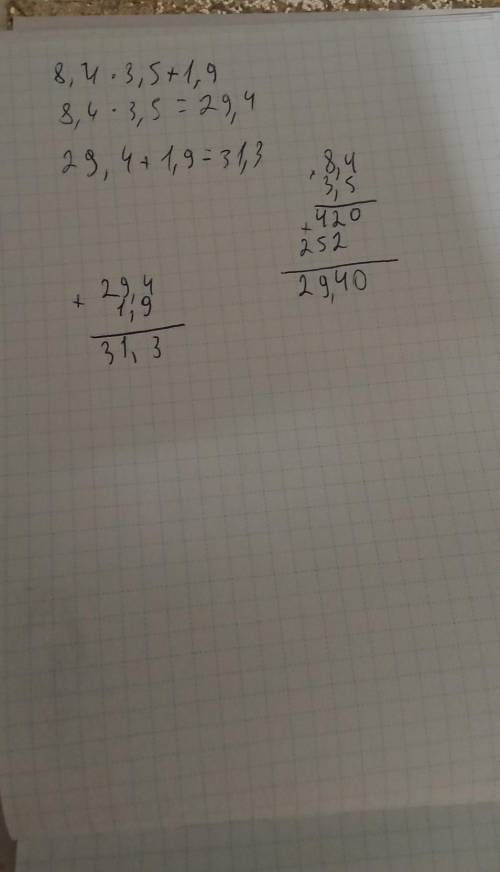 8,4 · 3,5 + 1,9
8,4 · 3,5 = 29,4
29,4 + 1,9 = 31,3
· 8,4
3,5
+ 420
252
29,40
+ 29,4
1,9
31,3